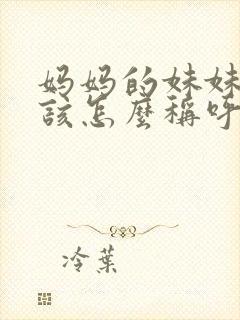 妈妈的妹妹
該怎麼稱呼
冷葉